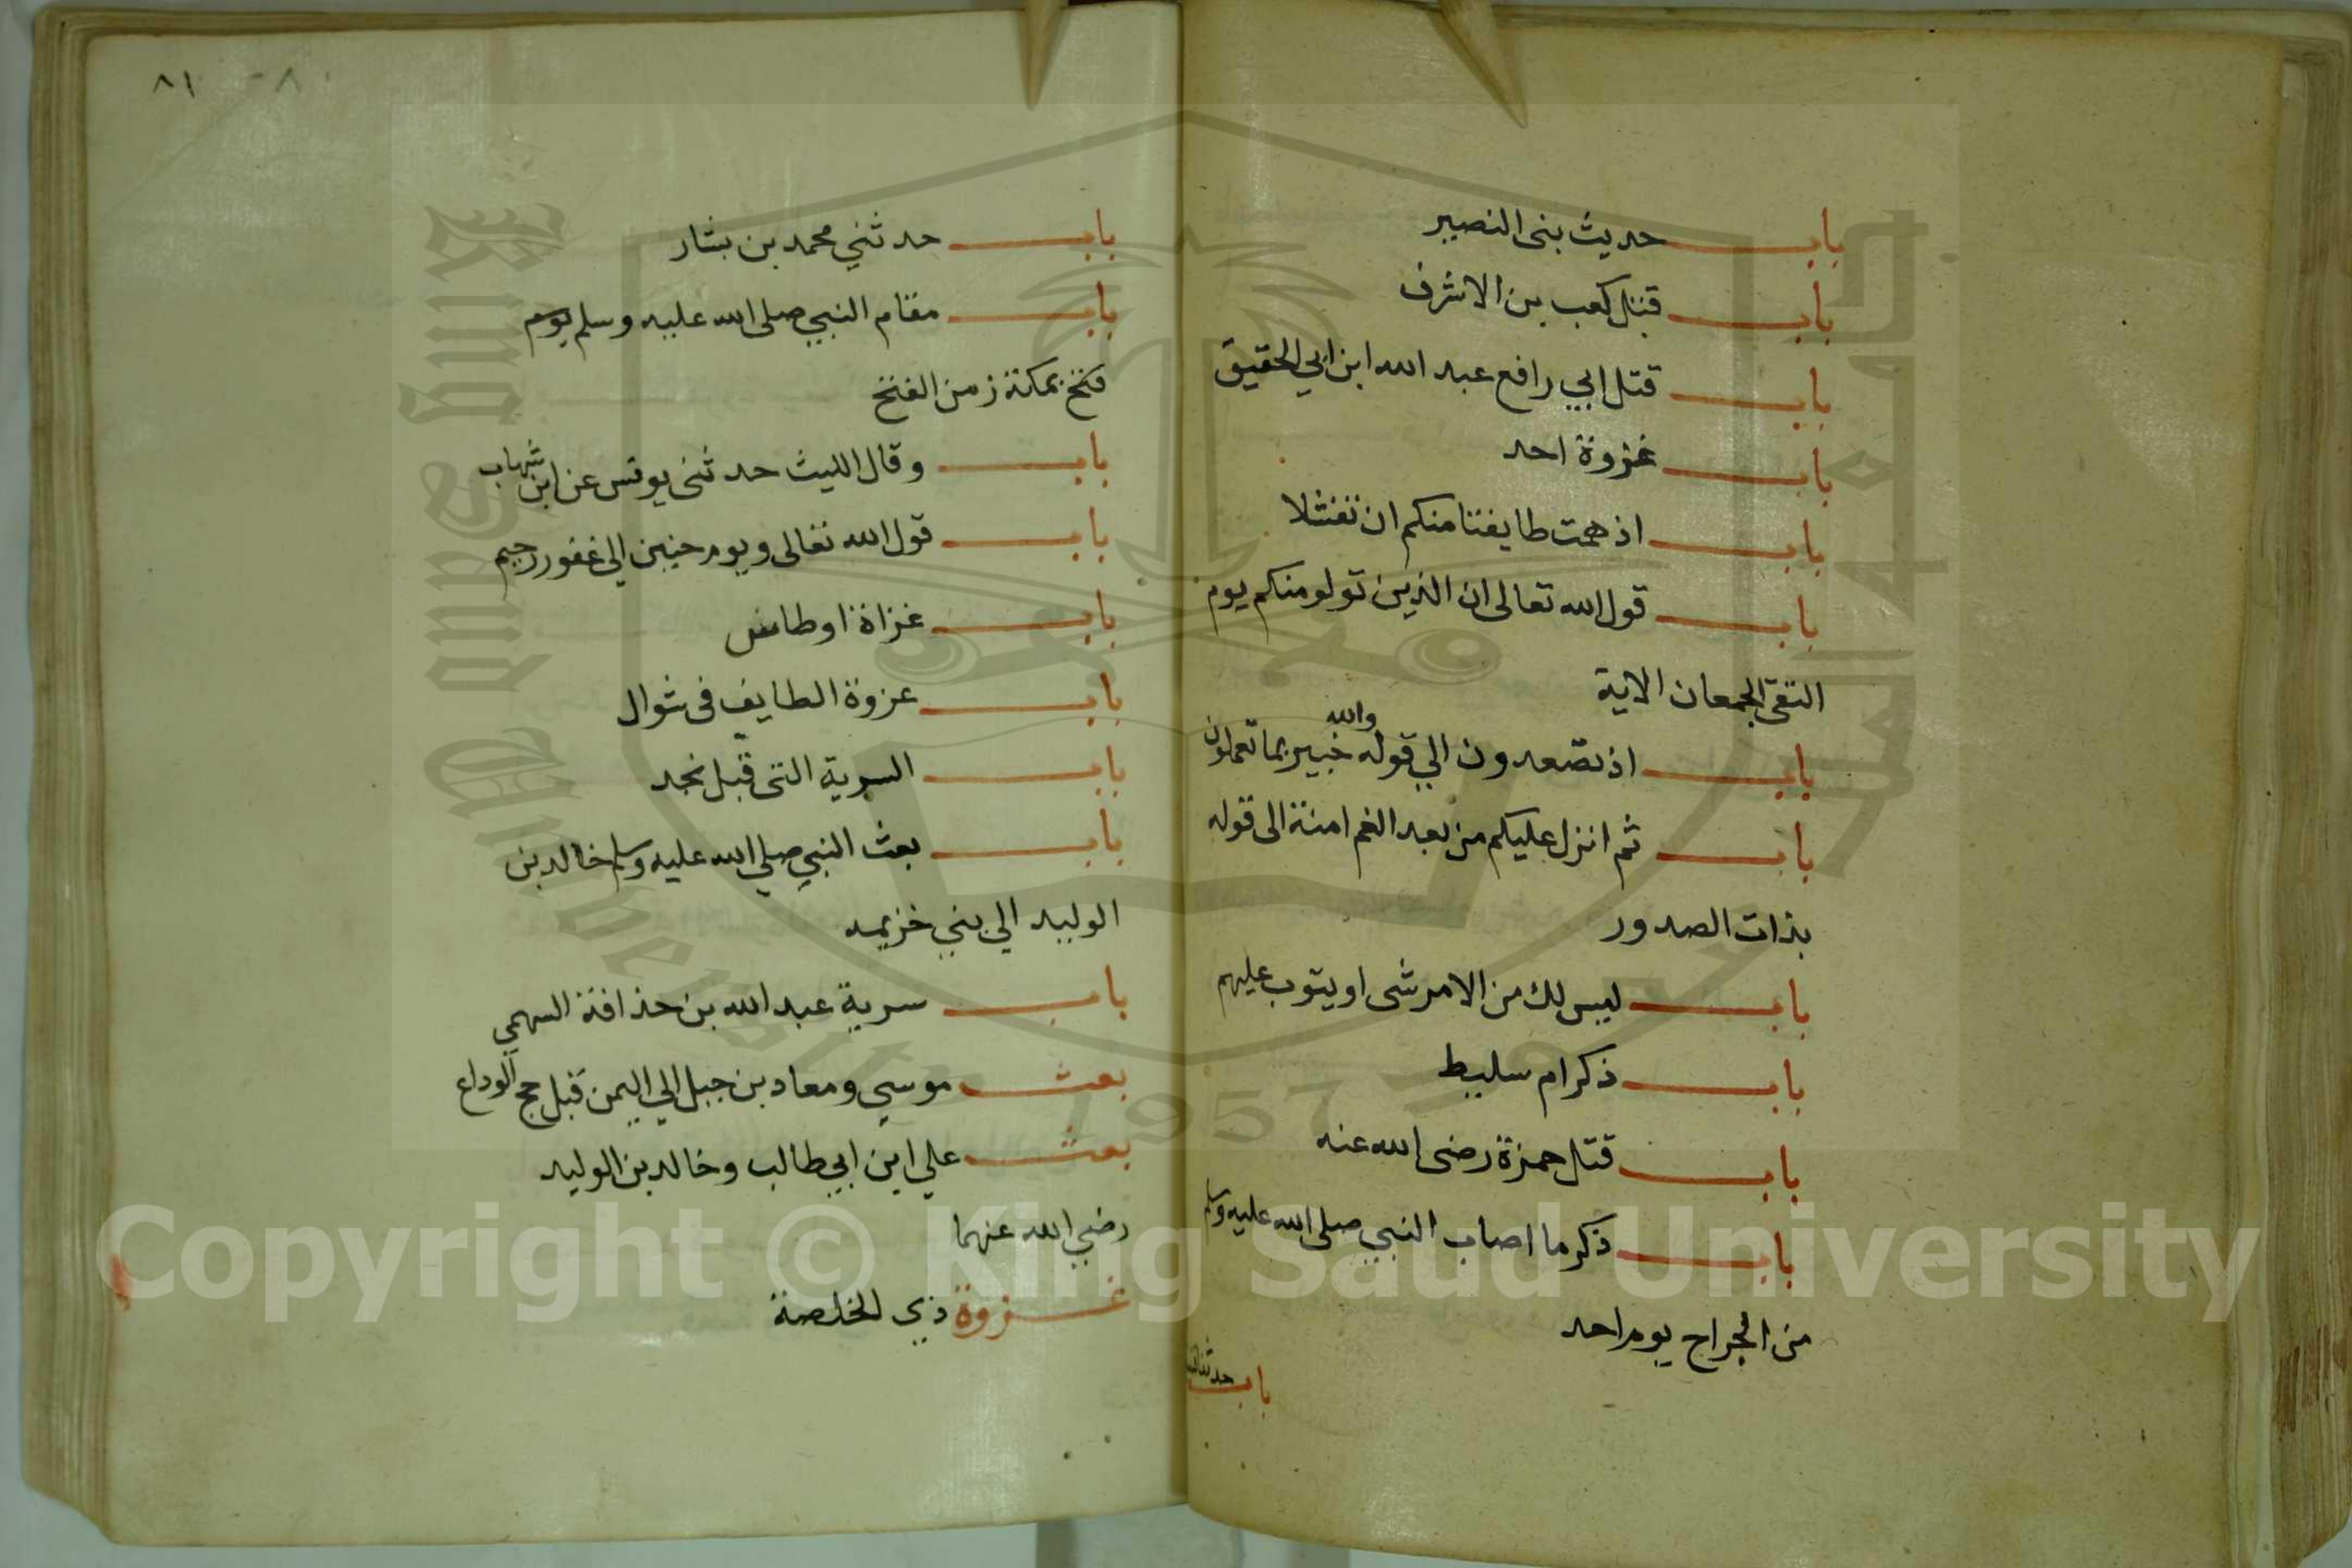 باب حديث بنى النصير
باب قتل كعب بن الاشرف
باب قتل ابي رافع عبد الله ابن ابي الحقيق
باب غزوة احد
باب اذ همت طايفتا منكم ان تفشلا
باب قول الله تعالى ان الذين تولو منكم يوم
التقى الجمعان الاية
باب اذ تصعدون الي قوله والله خبير بما تعملون
باب ثم انزل عليكم من بعد الغم امنة الى قوله
بذات الصدور
باب ليس لك من الامر شى او يتوب عليهم
باب ذكر ام سليط
باب قتل حمزة رضى الله عنه
باب ذكر ما اصاب النبي صلى الله عليه وسلم
من الجراح يوم احد
باب
٨١ ٨٠
باب حدثني محمد بن بشار
باب مقام النبي صلى الله عليه وسلم يوم
فتح بمكة زمن الفتح
باب وقال الليث حدثنى يونس عن ابن شهاب
باب قول الله تعالى ويوم حنين الي غفور رحيم
باب غزاة اوطاس
باب غزوة الطايف فى شوال
باب السرية التى قبل نجد
باب بعث النبي صلي الله عليه وسلم خالد بن
الوليد الي بني خزيمه
باب سرية عبد الله بن حذافة السهمي
بعث موسي ومعاد بن جبل الي اليمن قبل حج الوداع
بعث علي ابن ابي طالب وخالد بن الوليد
رضي الله عنهما
غزوة ذي الخلصة
Copyright © King Saud University
King Saud University
1957